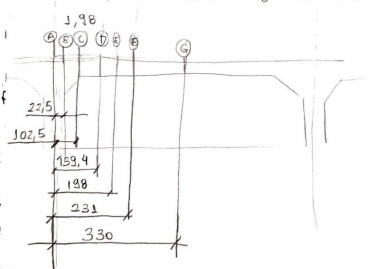 1,98
A B C D E B G
22,5
102,5
139,4
198
231
330